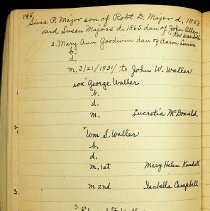 146
Susa P. Major son of Robt D. Major d. 1853
and Susan Majors d. 1865 dau of John
2. Mary Ann Goodwin dau of Aaron
b.
d.
m. 3/21/1831/ to John W. Waller
son George Waller
b.
d.
m. Lucretia McDonald
2.
"Wm S. Waller
b.
d.
m. 1st Mary Helen Kendall
m 2nd Isabella Campbell
3.